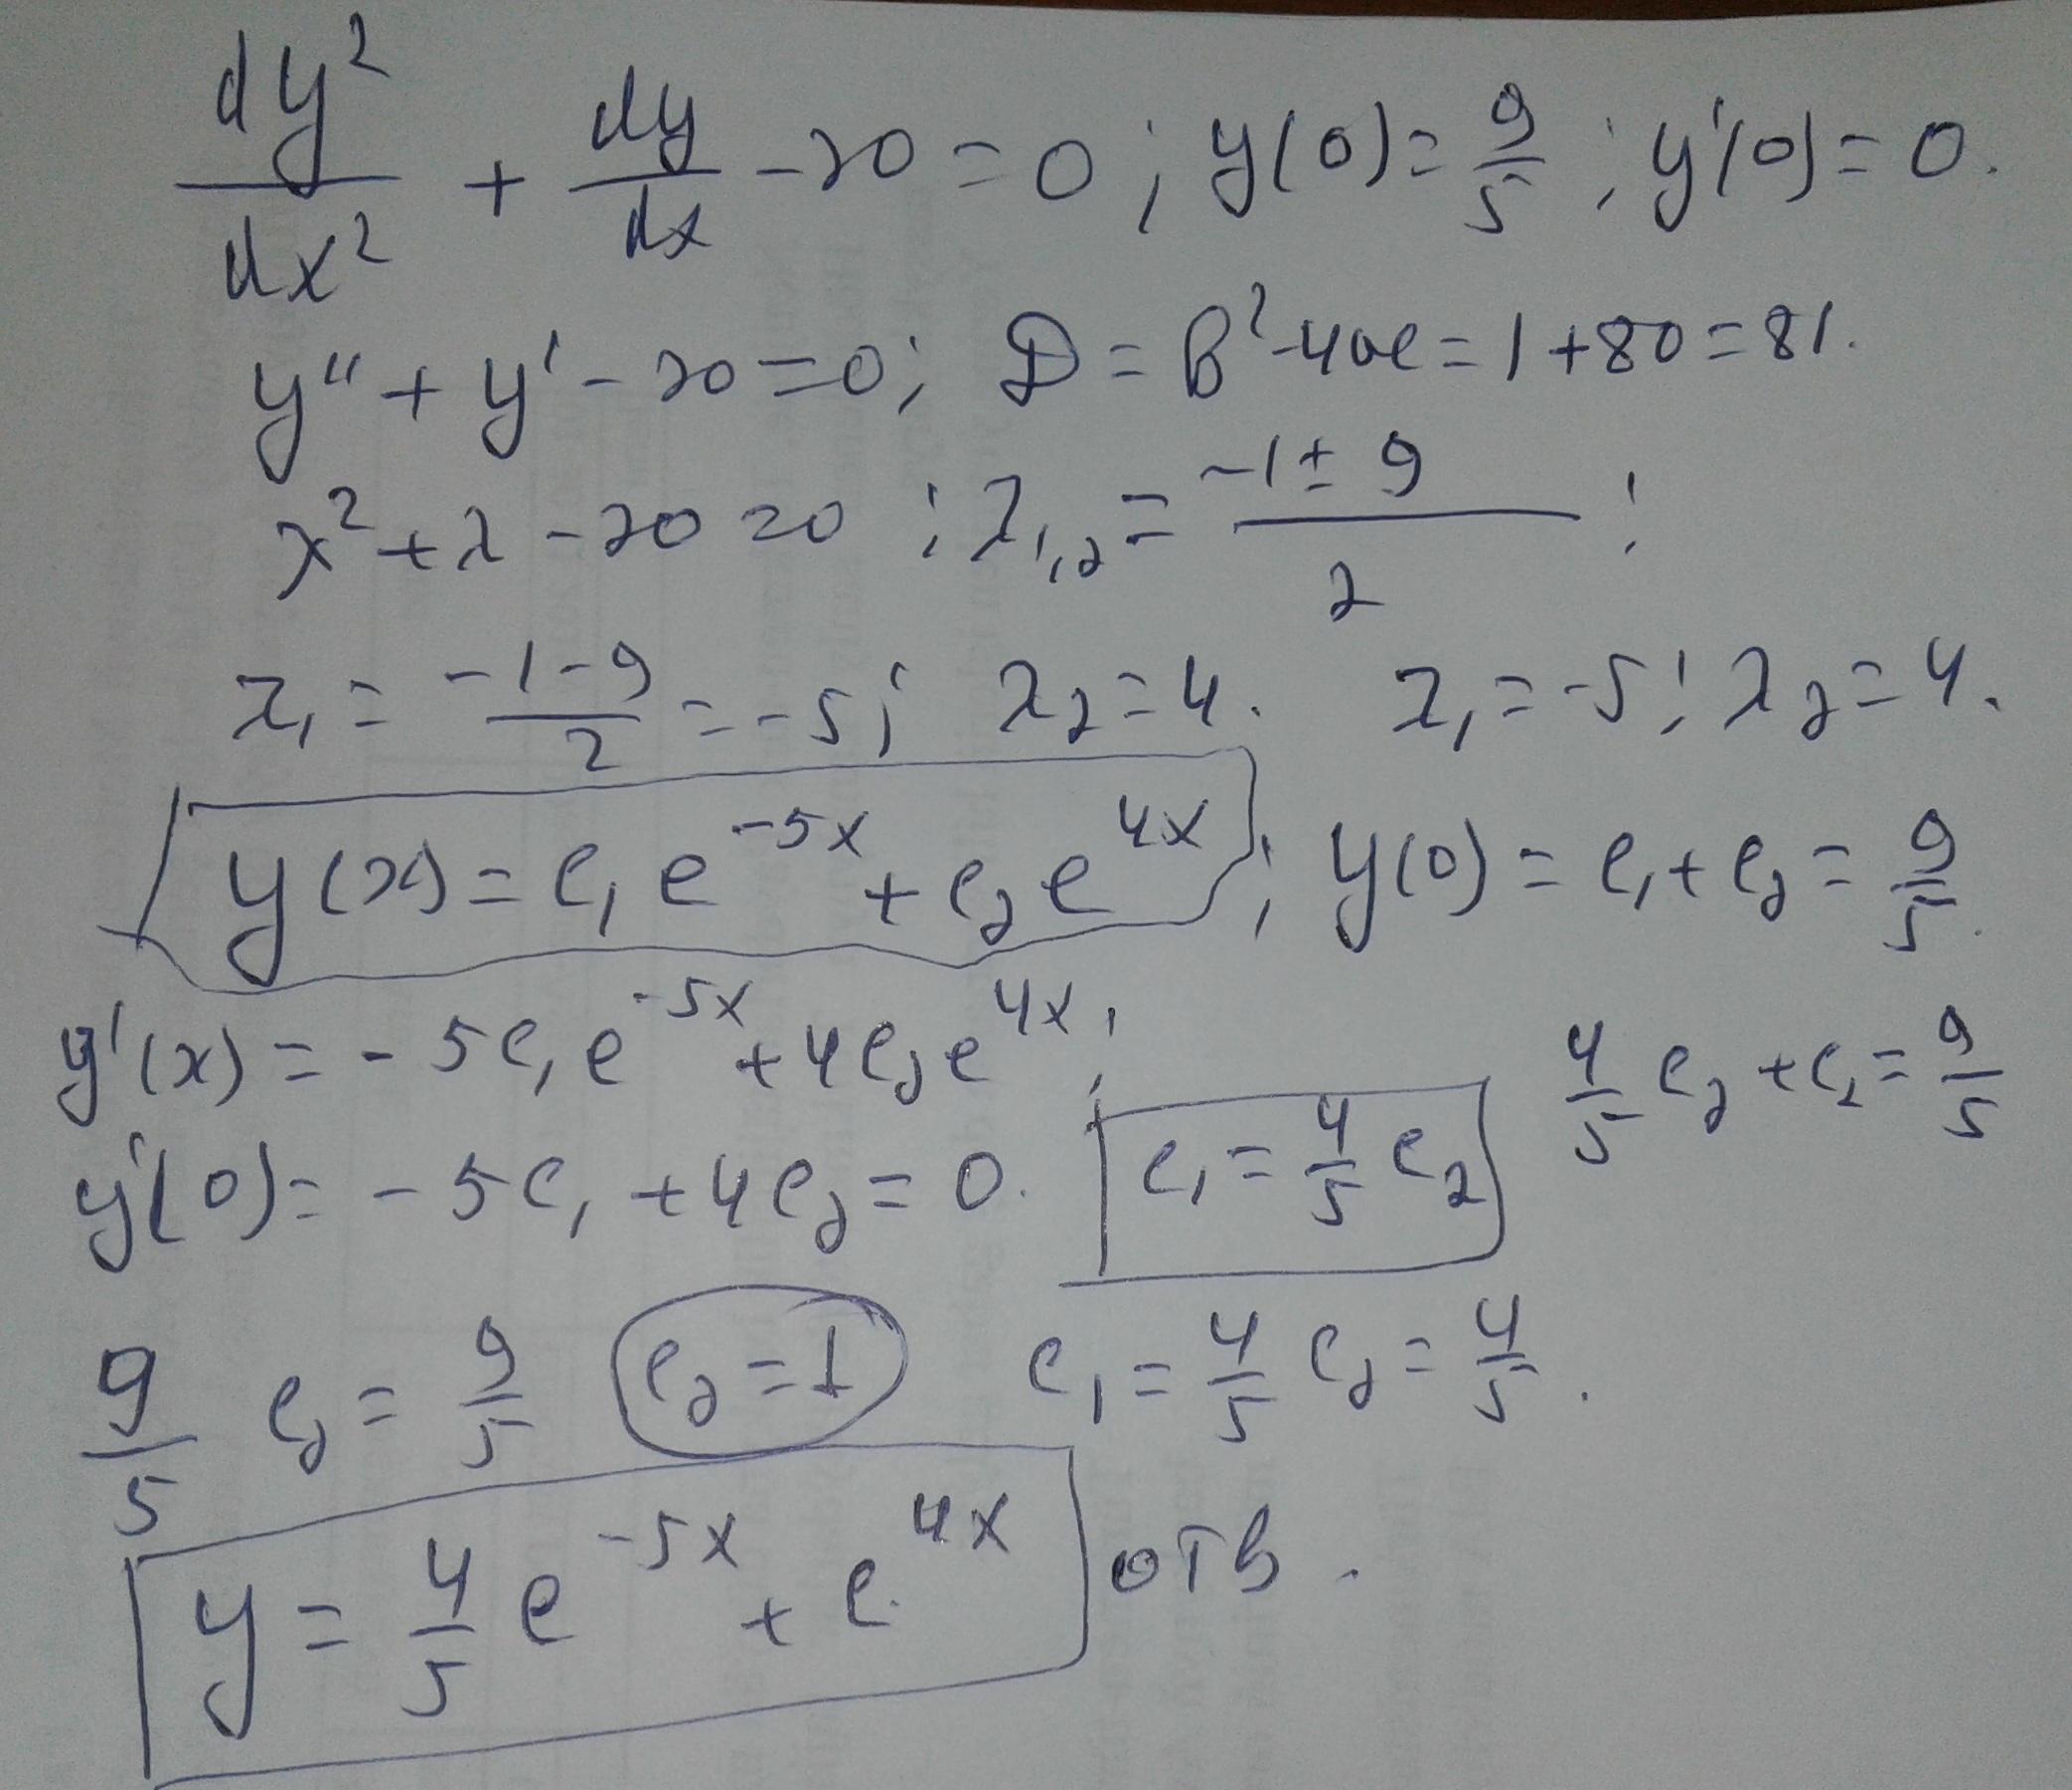 dy²/dx² + dy/dx - 20 = 0 ; y(0) = 9/5 ; y'(0) = 0.
y'' + y' - 20 = 0 ; D = B² - 4ac = 1 + 80 = 81.
λ² + λ - 20 = 0 ; λ₁,₂ = (-1 ± 9)/2 ;
λ₁ = (-1-9)/2 = -5 ; λ₂ = 4. λ₁ = -5 ; λ₂ = 4.
y(x) = c₁ e^(-5x) + c₂ e^(4x) ; y(0) = c₁ + c₂ = 9/5.
y'(x) = - 5c₁ e^(-5x) + 4c₂ e^(4x) ; 4/5 c₂ + c₂ = 9/5
y'(0) = - 5c₁ + 4c₂ = 0. c₁ = 4/5 c₂
9/5 c₂ = 9/5 c₂ = 1 c₁ = 4/5 c₂ = 4/5.
y = 4/5 e^(-5x) + e^(4x) отв.